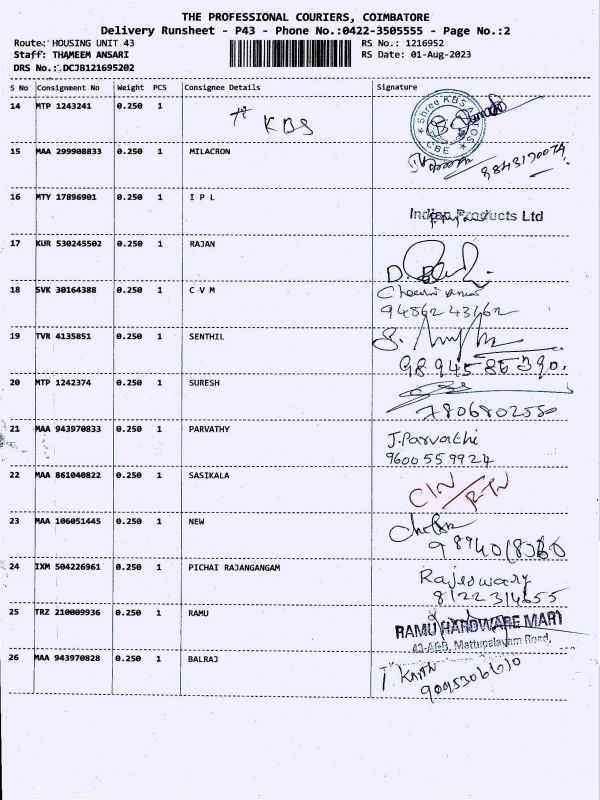 THE PROFESSIONAL COURIERS, COIMBATORE
Delivery Runsheet - P43 - Phone No.:0422-3505555 - Page No.:2
Route: HOUSING UNIT 43 RS No.: 1216952
Staff: THAMEEM ANSARI RS Date: 01-Aug-2023
DRS No.: DCJB121695202
S No Consignment No Weight PCS Consignee Details Signature
14 MTP 1243241 0.250 1 KBS Shree KBS CBE
15 MAA 299908833 0.250 1 MILACRON
16 MTY 17896901 0.250 1 I P L Indian Products Ltd
17 KUR 530245502 0.250 1 RAJAN
18 SVK 30164388 0.250 1 C V M
94862 43162
19 TVR 4135851 0.250 1 SENTHIL
98945 85390.
20 MTP 1242374 0.250 1 SURESH
7806802550
21 MAA 943970833 0.250 1 PARVATHY J.Parvathi
9600559924
22 MAA 861040822 0.250 1 SASIKALA
23 MAA 106051445 0.250 1 NEW
24 IXM 504226961 0.250 1 PICHAI RAJANGANGAM Rajeswary
8122314655
25 TRZ 210009936 0.250 1 RAMU RAMU HARDWARE MART
Mattupalayam Road,
26 MAA 943970828 0.250 1 BALRAJ
9095306610